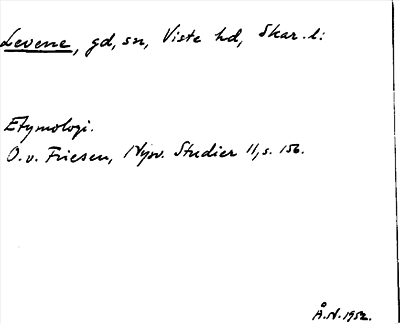 Levene, gd, sn, Viste hd, Skar. l:
Etymologi.
O. v. Friesen, Nysv. Studier 11, s. 156.
Å. N. 1952.